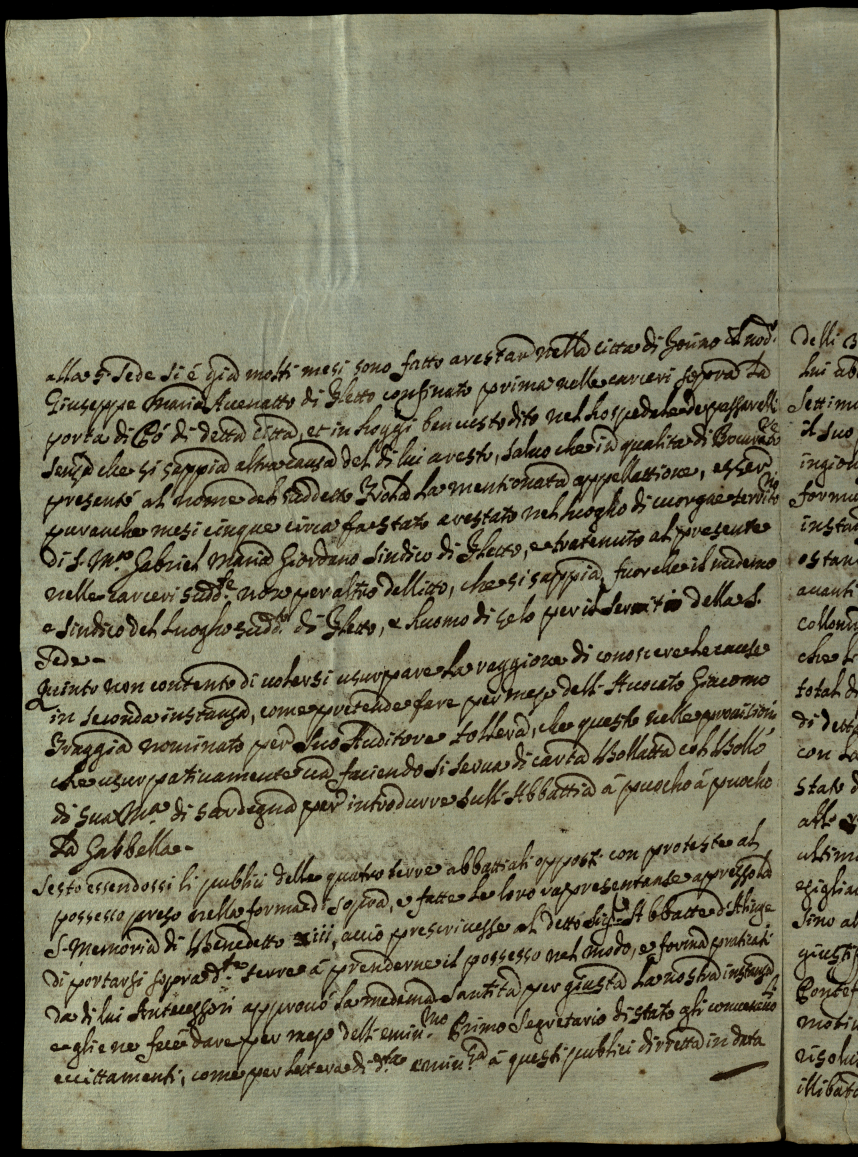 alla S. Sede si è già molti mesi sono fatto arestar nella città di Torino il nod.
Giuseppe Maria Avenatto di Fletto confinato prima nelle carceri sopra la
porta di Pò di detta Città, et in hoggi ben custodito nel hospedale de passarelli
senza che si sappia altra causa del di lui aresto, salvo che in qualità di
presentò al nome del suddetto Frola la mentionata appellattione, esser
puranche mesi cinque circa fa stato arestato nel luogho di cuorgnè territ.rio
di S. M.tà Gabriel Maria Giordano Sindico di Fletto, e tratenuto al presente
nelle carceri sudd.te non per altro dellitto, che si sappia, fuorche il medemo
e Sindico del luogho sudd.to di Fletto, e huomo di zelo per il servitio della S.
Sede -
Quinto non contento di volersi usurpare la raggione di conoscere le cause
in seconda instanza, come pretende fare per mezo dell' Avocato Giacomo
Fraggia nominato per suo Auditore tollera, che questo nelle provisioni
che usurpativamente và faciendo si serva di carta bollatta col bollo
di Sua M.tà di Sardegna per introdurre sull' Abbattia à puocho à puocho
la Gabbella -
Sesto essendossi li publici delle quatro terre abbattiali opposti con proteste al
possesso preso nella forma di sopra, e fatte le loro rapresentanse apresso la
S. Memoria di Benedetto xiii, acciò prescrivesse al detto Sig.r Abbatte d'Alinge
di portarsi sopra d.te terre à prenderne il possesso nel modo, e forma praticati
da di lui Antecessori approvò la medema Santità per giusta la nostra instanza
e gliene fece dare per mezo dell' emin.mo Primo Segretario di stato gli
eccittamenti, come per lettera di d.ta emin.za à questi publici diretta in data
delli 3
lui ab
settim
il suo
ingion
formu
instan
ostan
avanti
collond
che l
total d
di dett
con la
stato d
atto
ultim
esiglia
sino al
giusti
Pontef
motiv
risolu
illibat